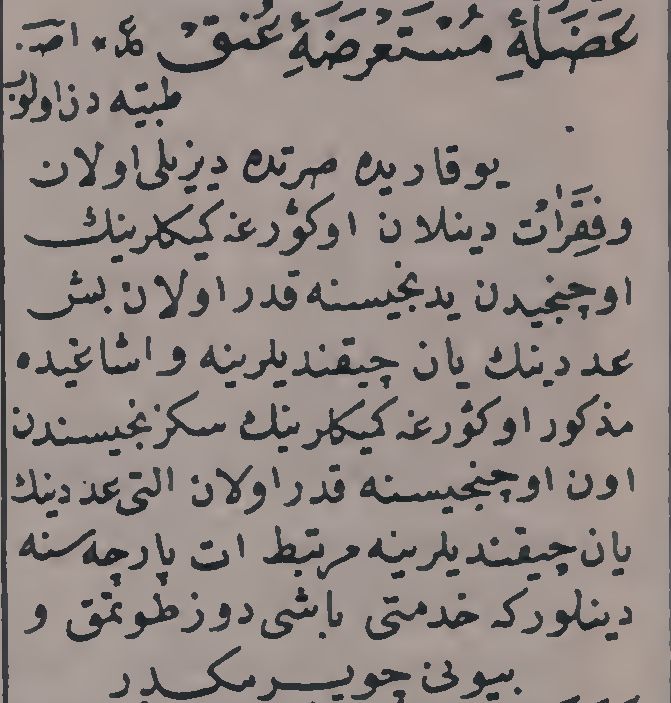 عَضَلَهٔ مُسْتَعْرِضَهٔ عُنُقْ ع* اصـ:
طبيه دن اولوب
يوقاريده صرتده ديزيلى اولان
و فِقَرَاتْ دينلان اوكۇرغه كيكلرينك
اوچنجيدن يدنجيسنه قدر اولان بش
عددينك يان چيقنديلرينه و اشاغيده
مذكور اوكۇرغه كيكلرينك سكزنجيسندن
اون اوچنجيسنه قدر اولان التى عددينك
يان چيقنديلرينه مرتبط ات پارچه سنه
دينلور كه خدمتى باشى دوز طوتمق و
بيونى چويرمكدر